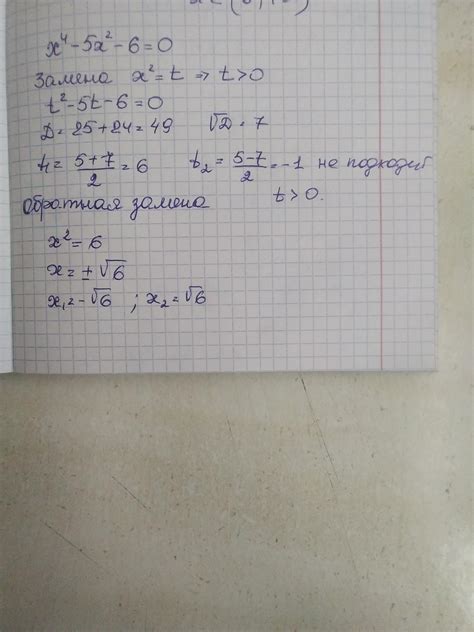 x⁴-5x²-6=0
Замена x²=t => t>0
t²-5t-6=0
D=25+24=49 √D=7
t₁= (5+7)/2 =6 t₂= (5-7)/2 =-1 не подходит
t>0.
Обратная замена
x²=6
x=±√6
x₁=-√6 ; x₂=√6